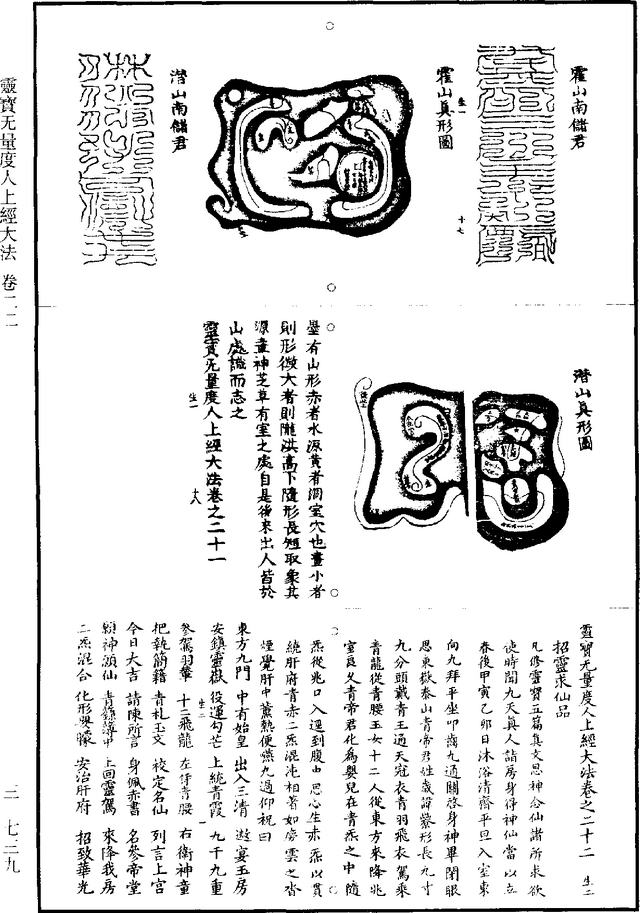 霍山南儲君
霍山真形圖
生一
十七
潛山南儲君
潛山真形圖
墨有山形赤者水源黃者洞室穴也畫小者
則形微大者則隴洪高下隨形長短取象其
源畫神芝草有室之處自是後來出人皆於
山處識而志之
靈寶无量度人上經大法卷之二十一
生一
十八
靈寶无量度人上經大法卷之二十二
生二
招靈求仙品
凡修靈寶五篇真文思神念仙諸所求欲
使時開九天真人詣房身得神仙當以立
春後甲寅乙卯日沐浴清齋平旦入室東
向九拜平坐叩齒九通關啓身神畢閉眼
思東嶽泰山青帝君姓歲諱䊷形長九寸
九分頭戴青玉通天冠衣青羽飛衣駕乘
青龍從青腰玉女十二人從東方來降兆
室良久青帝君化為嬰兒在青炁之中隨
炁從兆口入逕到腹中思心生赤炁以貫
繞肝府青赤二炁混沌相著如傍雲之沓
煙覺肝中薰熱便嚥九過仰祝曰
東方九門　中有始皇　出入三清　遊宴玉房
安鎮靈嶽　役運勾芒　上統青霞　九千九重
生二
一
參駕羽輦　十二飛龍　左侍青腰　右衛神童
把執簡籍　青札玉文　校定名仙　列言上宮
今日大吉　請陳所言　身佩赤書　名參帝堂
願神願仙　青籙簿中　上回靈駕　來降我房
二炁混合　化形嬰矇　安治肝府　招致華光
靈寶无量度人上經大法　卷二二
三　七三九